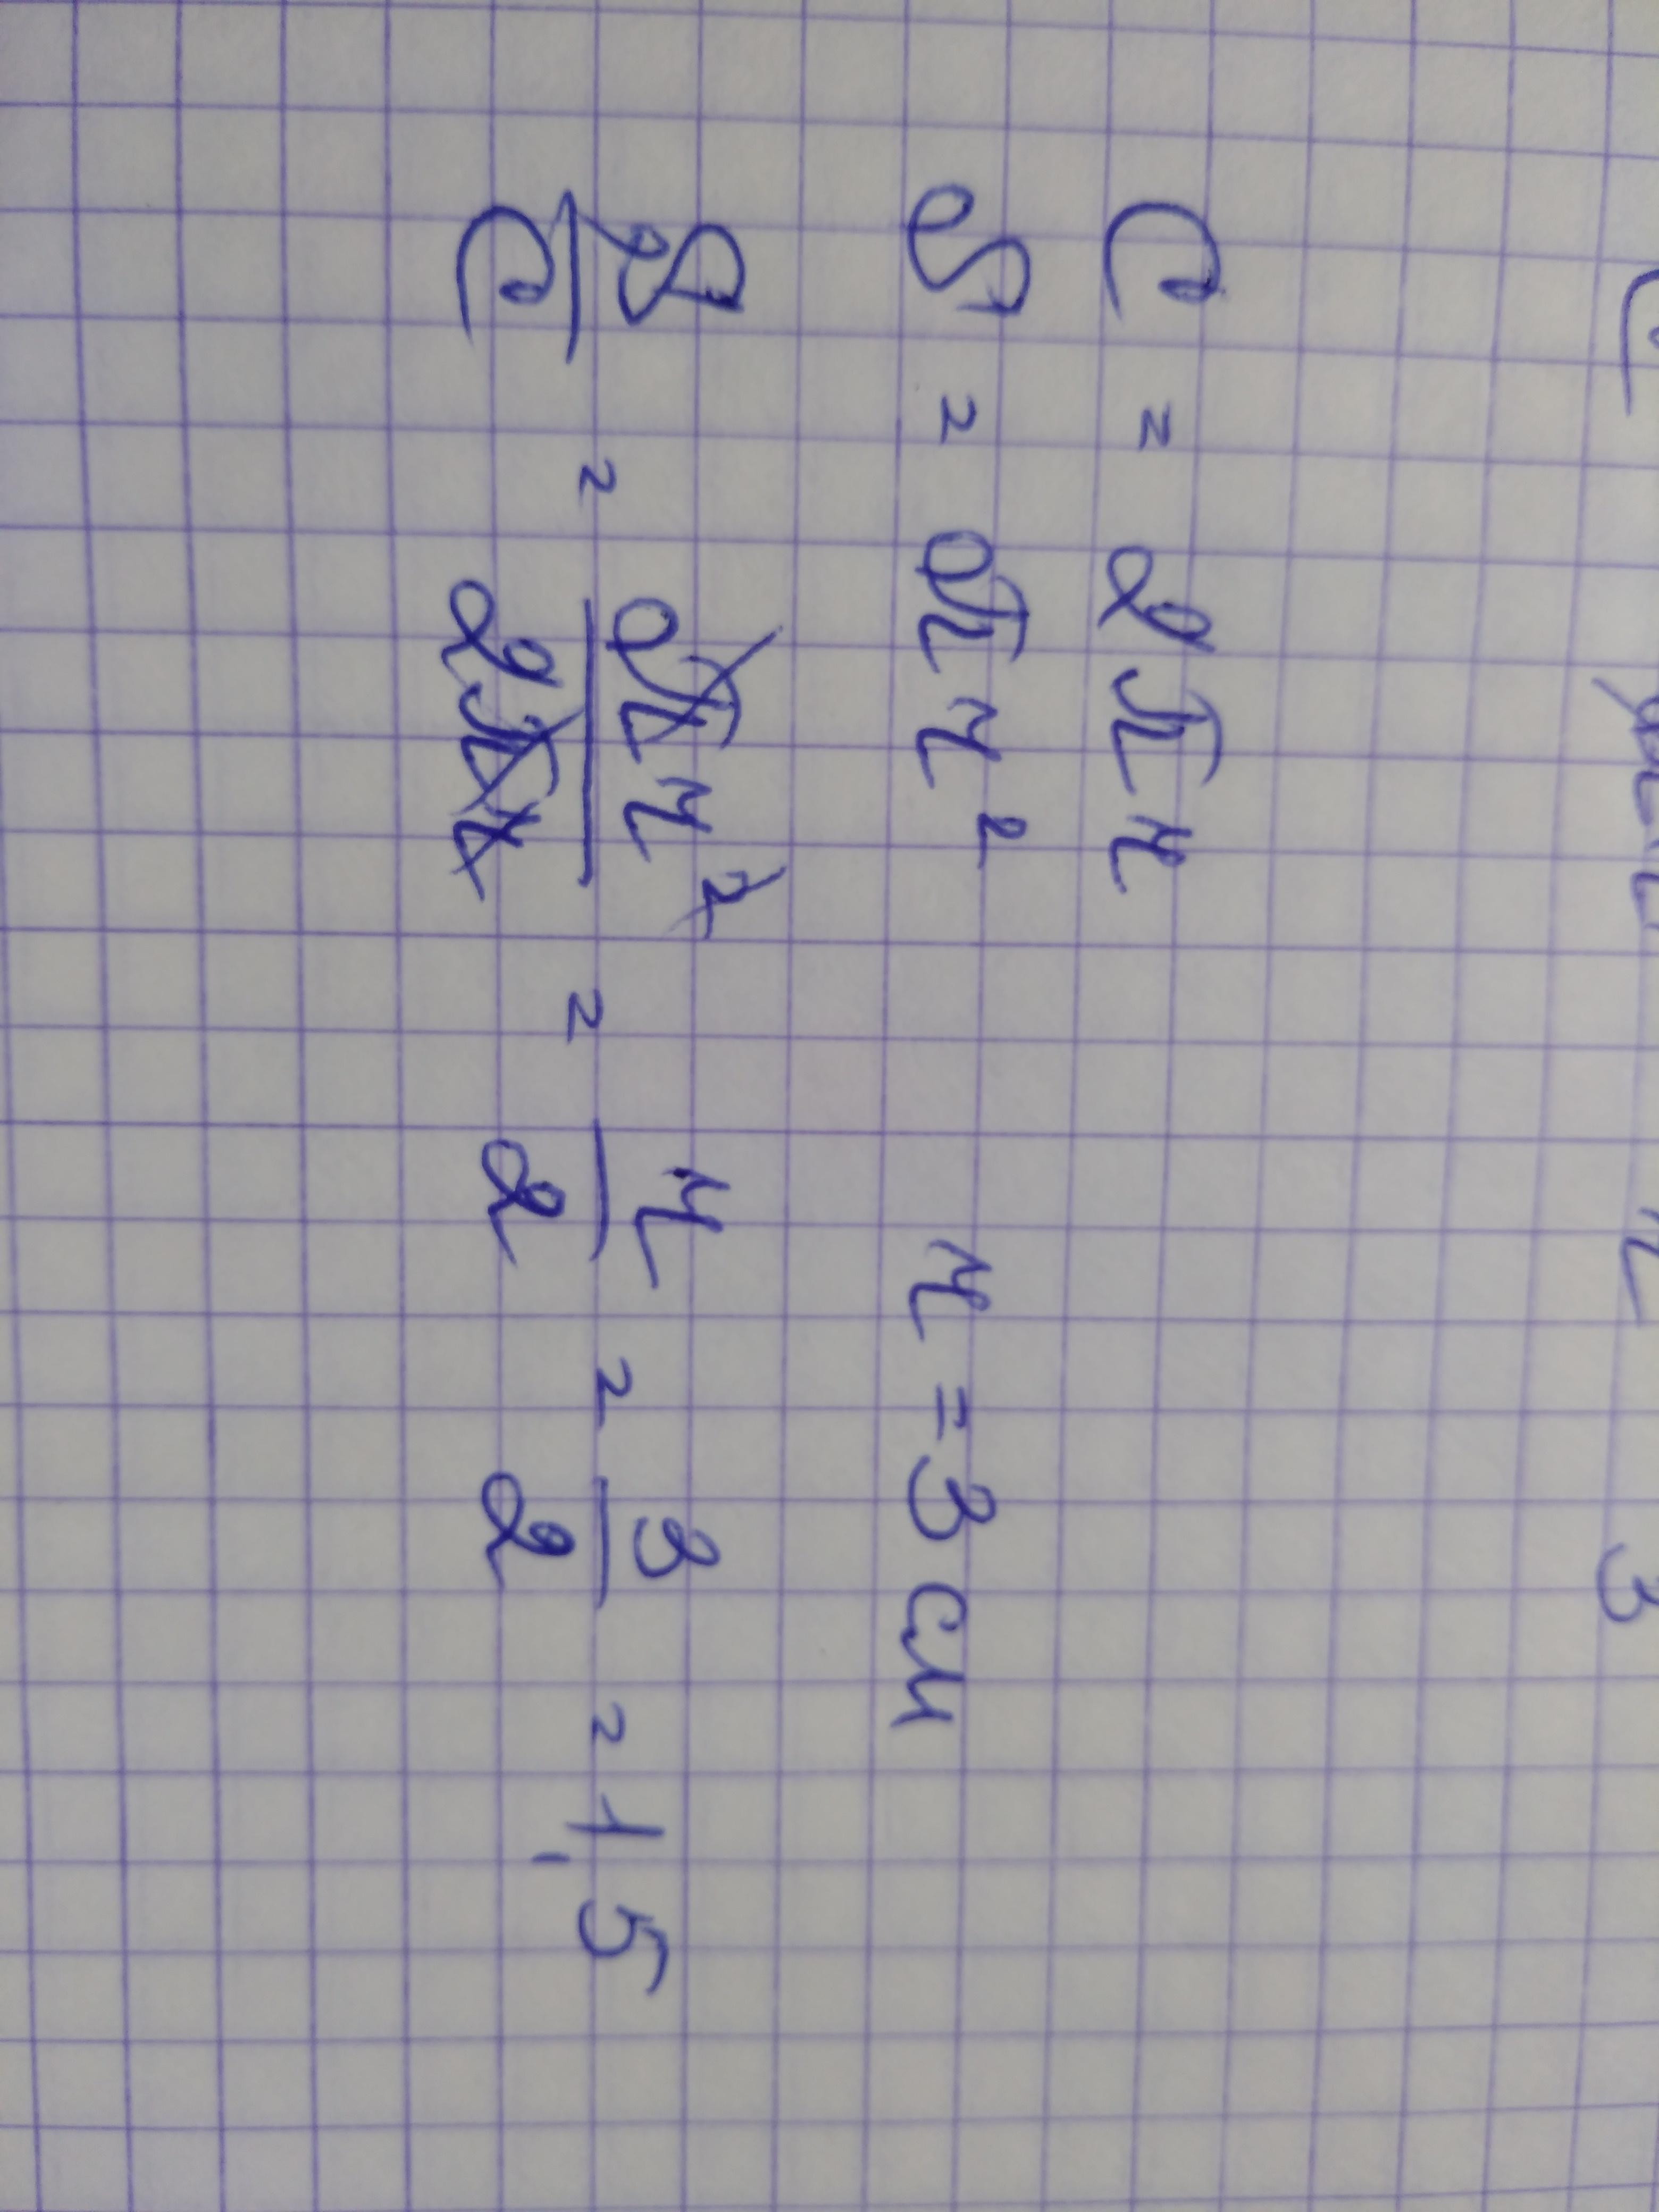 C = 2πr
S = πr² r = 3 см
S/C = πr²/2πr = r/2 = 3/2 = 1,5